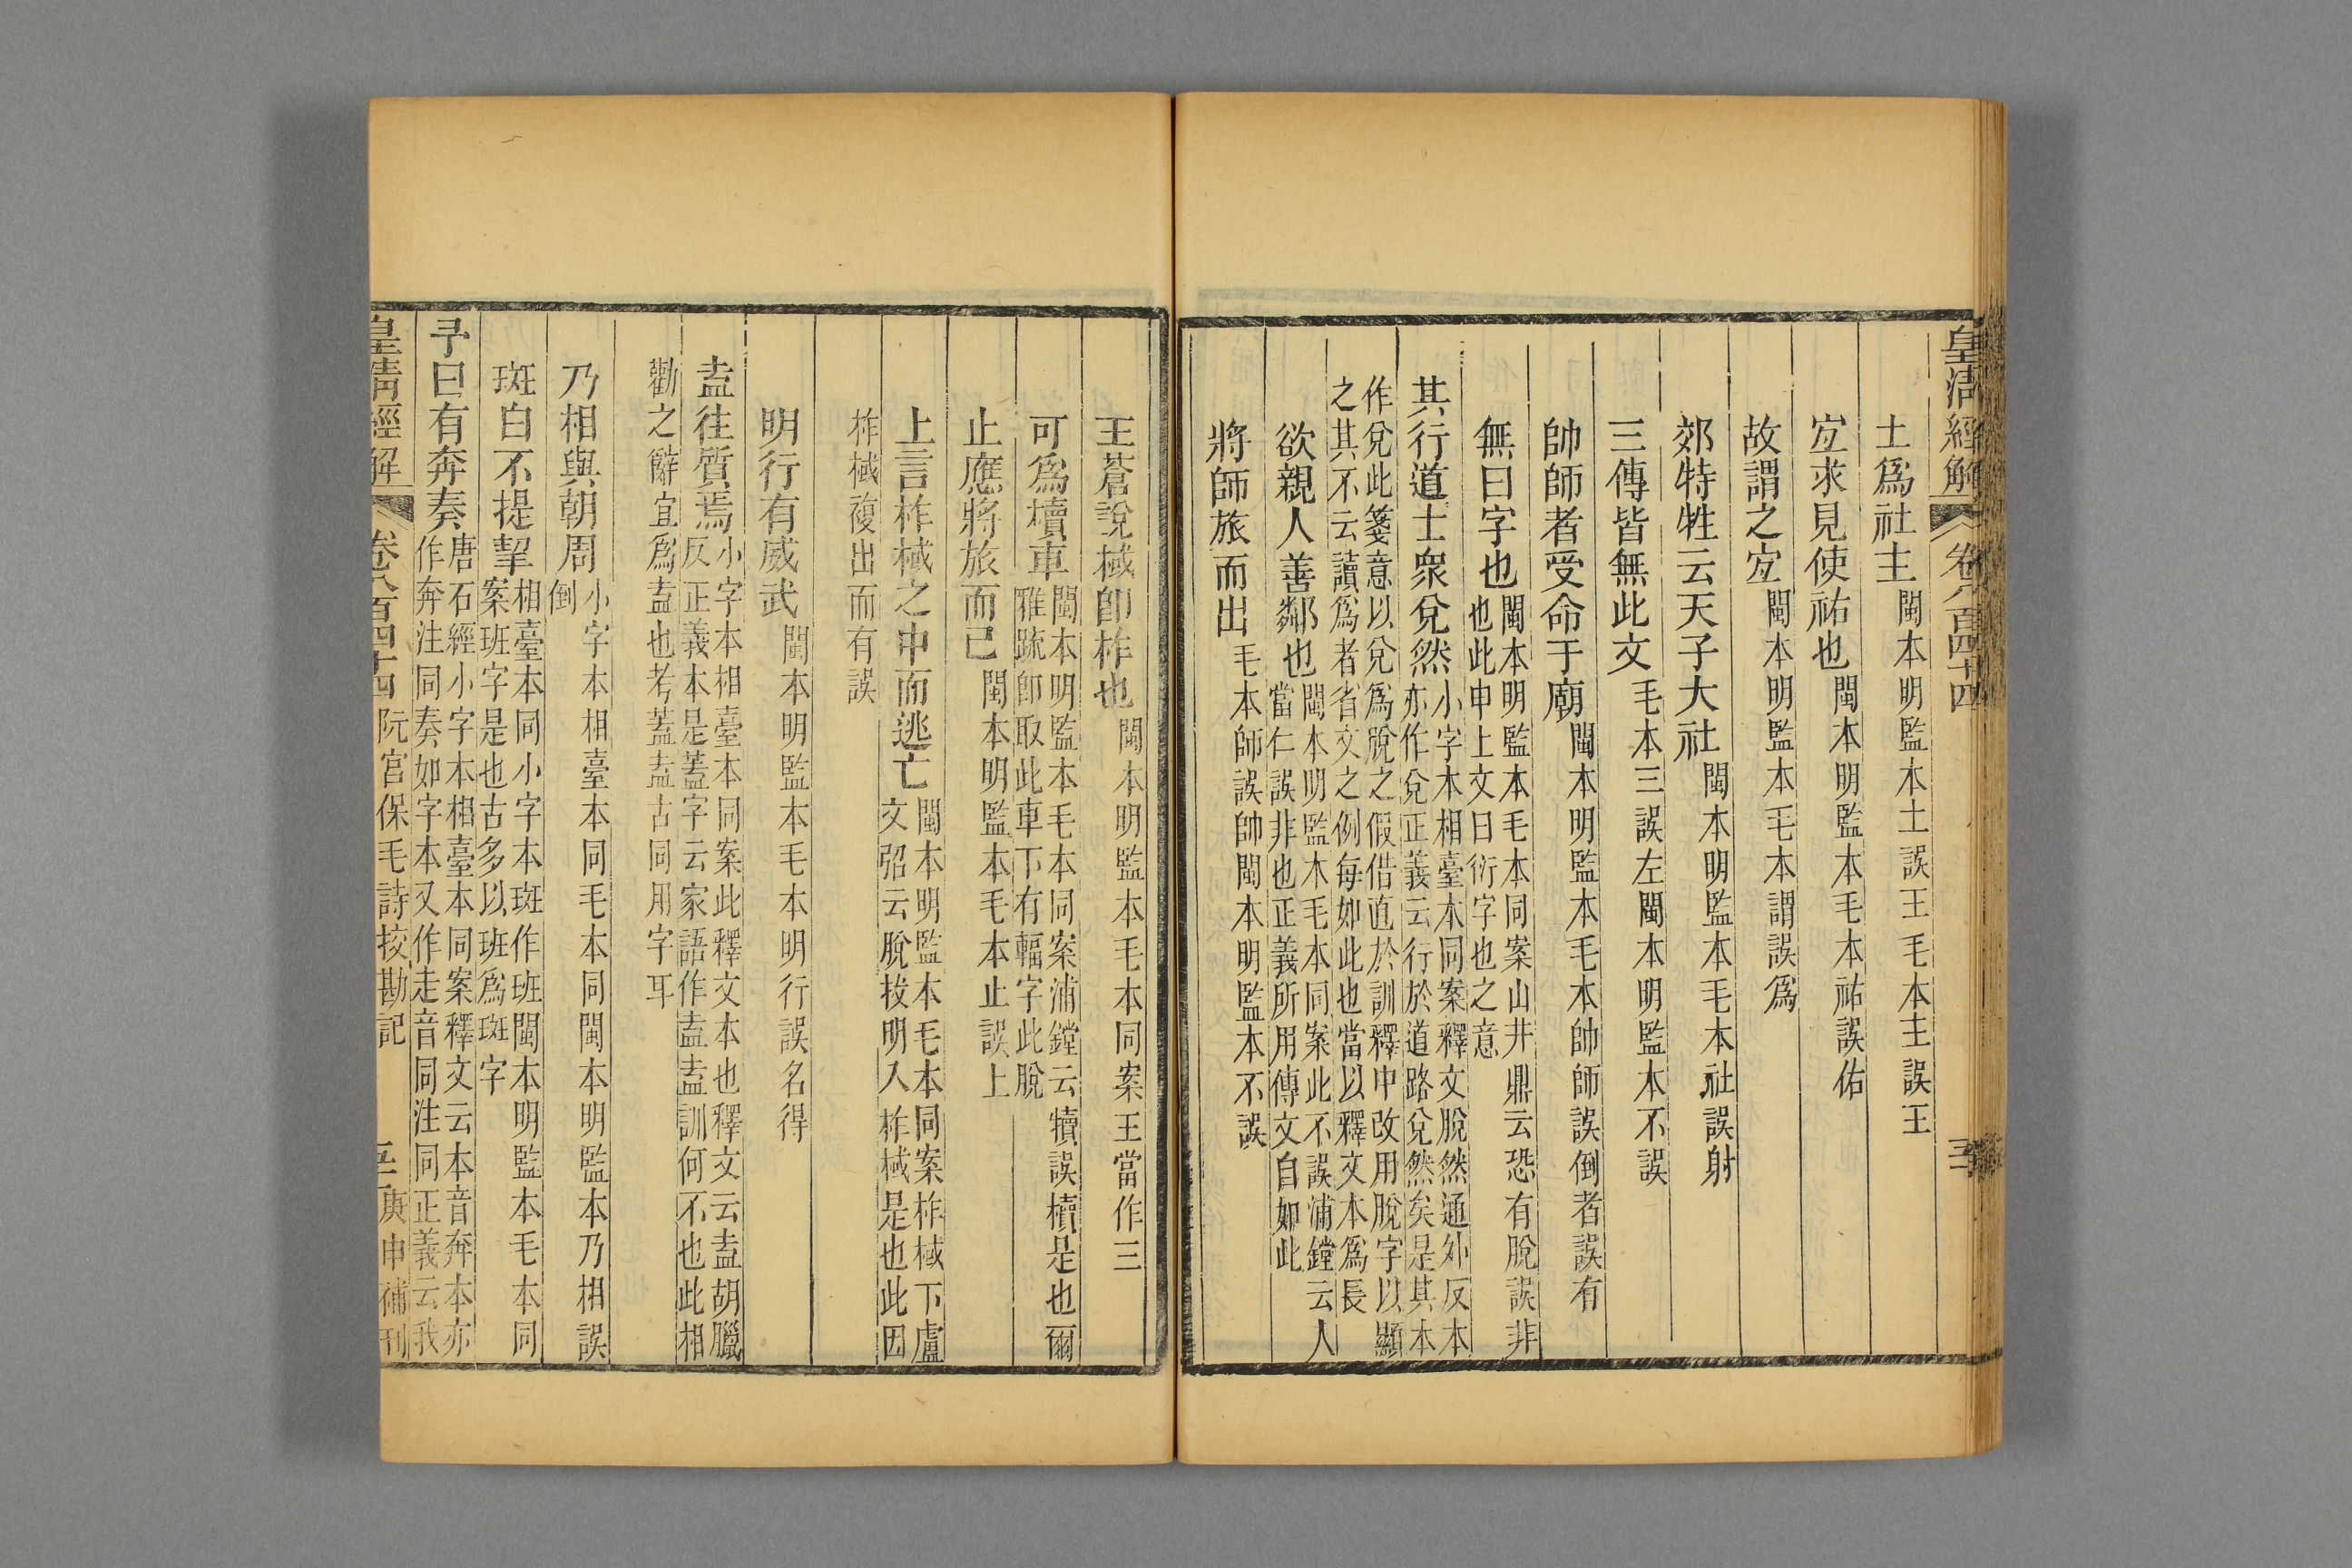 皇清經解 卷八百四十四
土爲社主 閩本明監本土誤王毛本主誤王
宜求見使祐也 閩本明監本毛本祐誤佑
故謂之宜 閩本明監本毛本謂誤爲
郊特牲云天子大社 閩本明監本毛本社誤射
三傳皆無此文 毛本三誤左閩本明監本不誤
帥師者受命于廟 閩本明監本毛本帥師誤倒者誤有
無曰字也 閩本明監本毛本同案山井鼎云恐有脫誤非
也此申上文曰衍字也之意
其行道士衆兌然 小字本相臺本同案釋文脫然通外反本
亦作兌正義云行於道路兌然矣是其本
作兌此箋意以兌爲脫之假借直於訓釋中改用脫字以顯
之其不云讀爲者省文之例每如此也當以釋文本爲長
欲親人善鄰也 閩本明監本毛本同案此不誤浦鏜云人
當仁誤非也正義所用傳文自如此
將師旅而出 毛本師誤帥閩本明監本不誤
王蒼說棫卽柞也 閩本明監本毛本同案王當作三
可爲櫝車 閩本明監本毛本同案浦鏜云犢誤櫝是也爾
雅疏卽取此車下有輻字此脫
止應將旅而已 閩本明監本毛本止誤上
上言柞棫之中而逃亡 閩本明監本毛本同案柞棫下盧
文弨云脫拔明入柞棫是也此因
柞棫複出而有誤
明行有威武 閩本明監本毛本明行誤名得
盍往質焉 小字本相臺本同案此釋文本也釋文云盍胡臘
反正義本是蓋字云家語作盍盍訓何不也此相
勸之辭宜爲盍也考蓋盍古同用字耳
乃相與朝周 小字本相臺本同毛本同閩本明監本乃相誤
倒
斑白不提挈 相臺本同小字本斑作班閩本明監本毛本同
案班字是也古多以班爲斑字
予曰有奔奏 唐石經小字本相臺本同案釋文云本音奔本亦
作奔注同奏如字本又作走音同注同正義云我
皇清經解 卷八百四十四 阮宮保毛詩挍勘記 庚申補刊